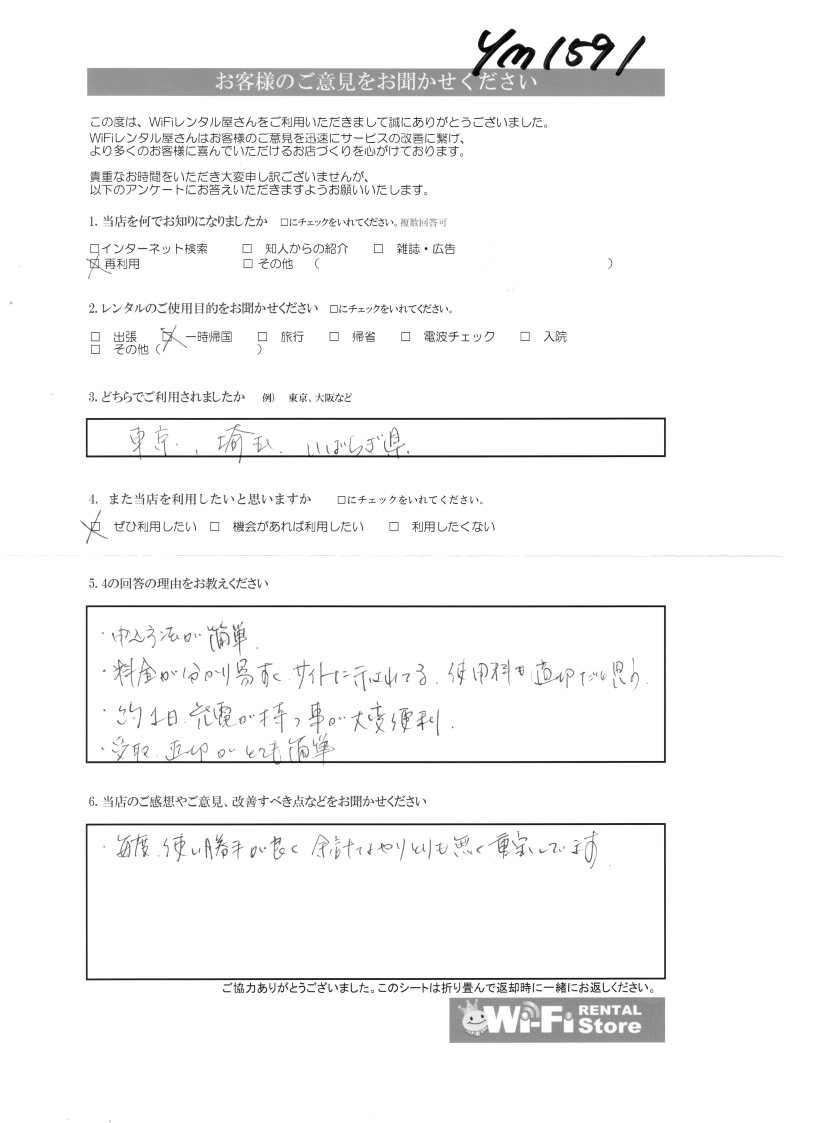 Ym1591
お客様のご意見をお聞かせください
この度は、WiFiレンタル屋さんをご利用いただきまして誠にありがとうございました。
WiFiレンタル屋さんはお客様のご意見を迅速にサービスの改善に繋げ、
より多くのお客様に喜んでいただけるお店づくりを心がけております。
貴重なお時間をいただき大変申し訳ございませんが、
以下のアンケートにお答えいただきますようお願いいたします。
1. 当店を何でお知りになりましたか □にチェックをいれてください。複数回答可
□インターネット検索 □ 知人からの紹介 □ 雑誌・広告
☒再利用 □ その他 ( )
2. レンタルのご使用目的をお聞かせください □にチェックをいれてください。
□ 出張 ☒ 一時帰国 □ 旅行 □ 帰省 □ 電波チェック □ 入院
□ その他 ( )
3. どちらでご利用されましたか 例) 東京、大阪など
東京、埼玉、いばらぎ県。
4. また当店を利用したいと思いますか □にチェックをいれてください。
☒ ぜひ利用したい □ 機会があれば利用したい □ 利用したくない
5. 4の回答の理由をお教えください
・申込方法が簡単。
・料金が分かり易すく、サイトに示されてる。使用料も適切だと思う。
・約1日、充電が持つ事が大変便利。
・受取、返却がとても簡単
6. 当店のご感想やご意見、改善すべき点などをお聞かせください
・毎度、使い勝手が良く余計なやりとりも無く重宝しています。
ご協力ありがとうございました。このシートは折り畳んで返却時に一緒にお返しください。
Wi-Fi RENTAL
Store